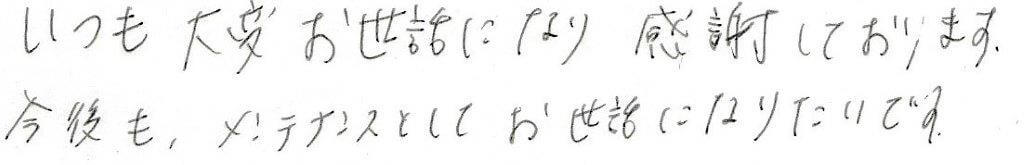 いつも大変お世話になり感謝しております.
今後も,メンテナンスとしてお世話になりたいです.